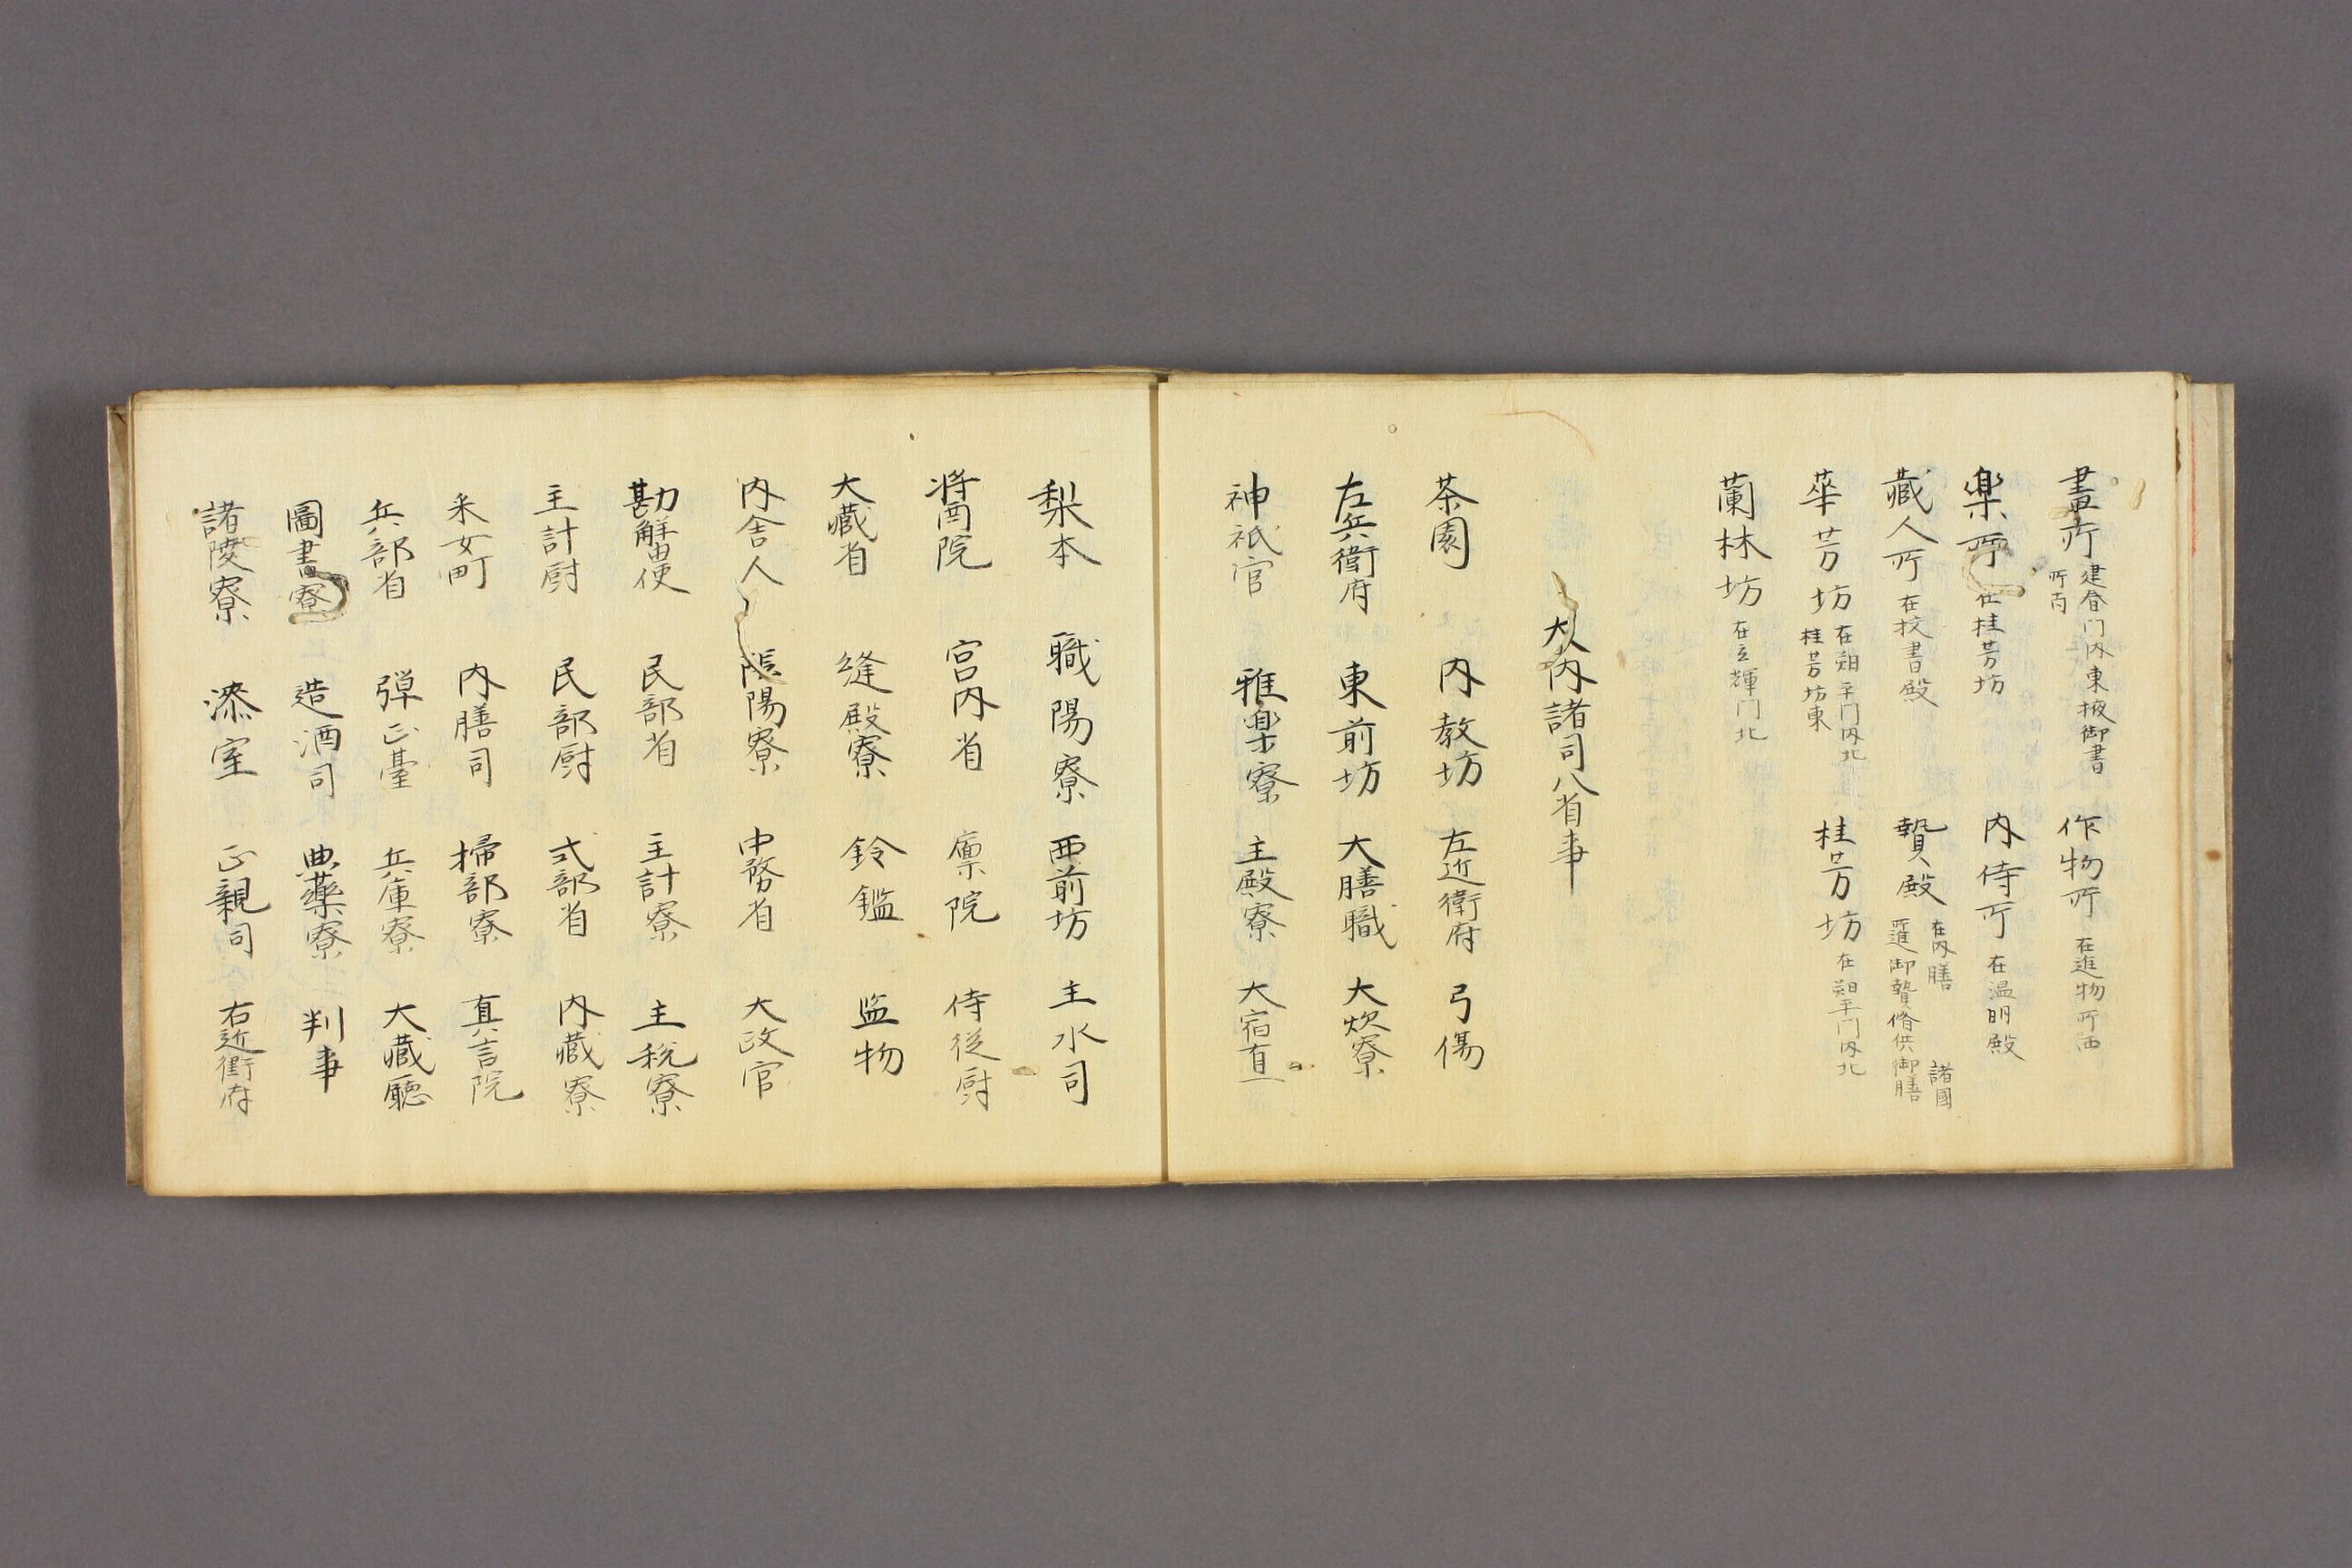 畫所 建春門内東掖御書所南 作物所 在進物所西
樂所 在桂芳坊 内侍所 在温明殿
藏人所 在校書殿 贄殿 在内膳 諸國所進御贄脩供御膳
華芳坊 在朔平門内北桂芳坊東 桂芳坊 在朔平門内北
蘭林坊 在玄輝門北
大内諸司八省事
茶園 内教坊 左近衛府 弓場
左兵衛府 東前坊 大膳職 大炊寮
神祇官 雅樂寮 主殿寮 大宿直
梨本 職陽寮 西前坊 主水司
将酉院 宮内省 廩院 侍從厨
大藏省 縫殿寮 鈴鑑 監物
内舎人 隂陽寮 中務省 大政官
勘解由使 民部省 主計寮 主税寮
主計厨 民部厨 式部省 内藏寮
采女町 内膳司 掃部寮 真言院
兵部省 彈正臺 兵庫寮 大藏廳
圖書寮 造酒司 典藥寮 判事
諸陵寮 漆室 正親司 右近衛府